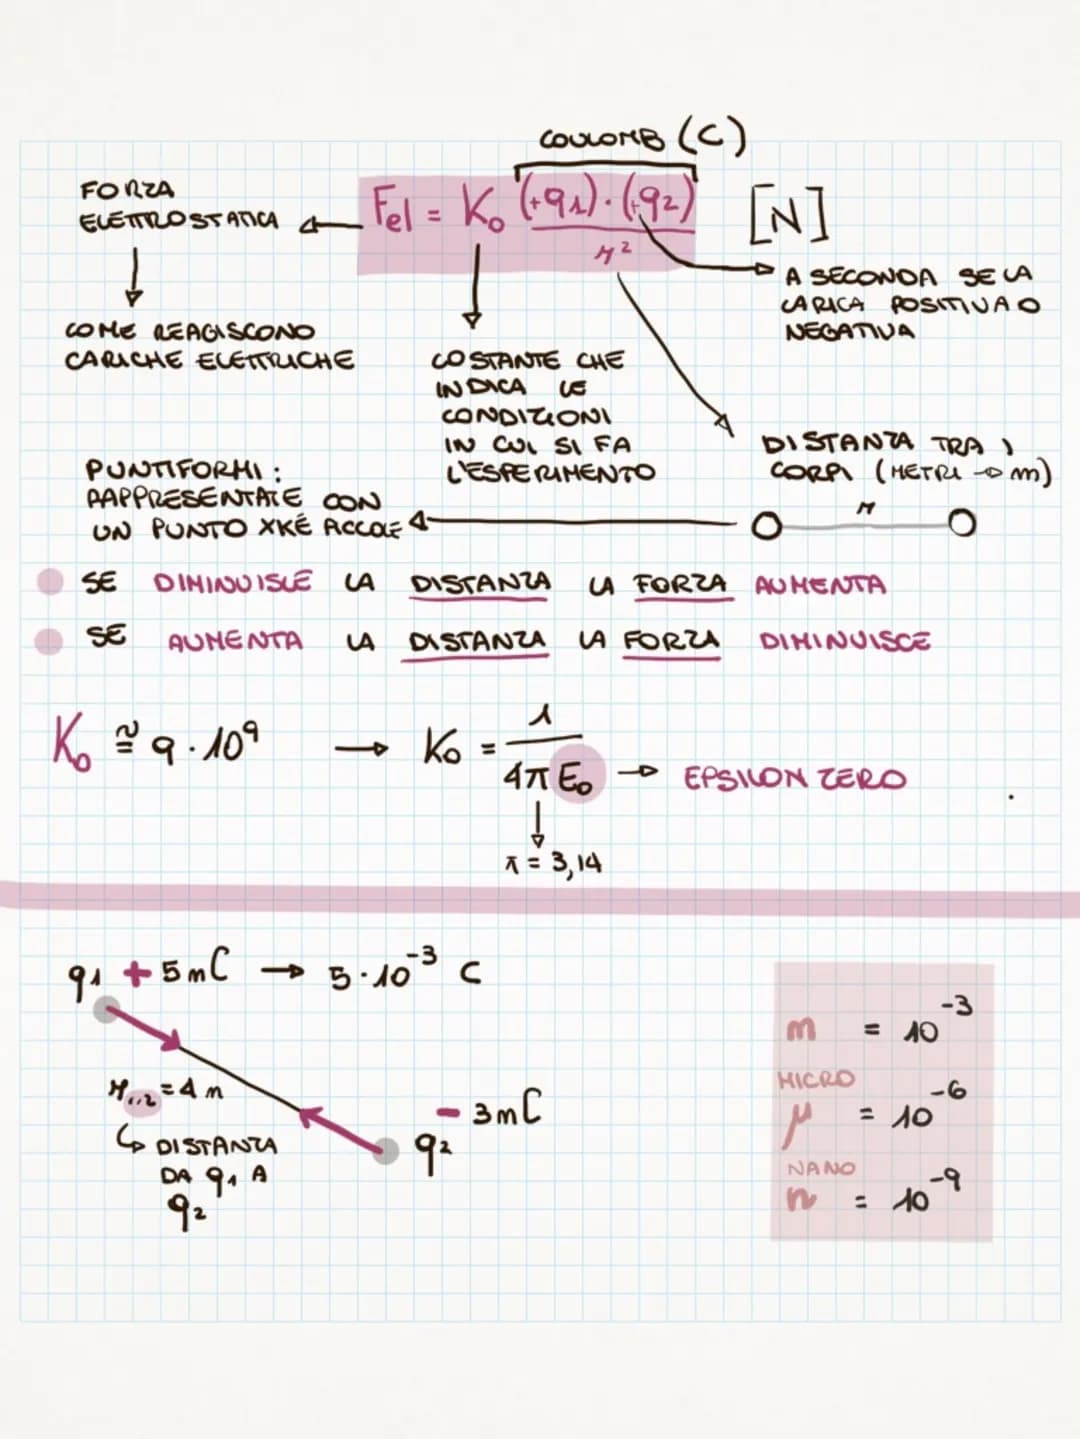 COULOMB (C)
FORZA
ELETTROSTATICA
Fel = K₀ (+q1)·(+q2)
r²
[N]
A SECONDA SE LA
CARICA POSITIVA O
NEGATIVA
COME REAGISCONO
CARICHE ELETTRICHE
COSTANTE CHE
INDICA LE
CONDIZIONI
IN CUI SI FA
L'ESPERIMENTO
DISTANZA TRA I
CORPI (METRI → m)
r
PUNTIFORMI:
RAPPRESENTATE CON
UN PUNTO XKÉ PICCOLE
SE DIMINUISCE LA DISTANZA LA FORZA AUMENTA
SE AUMENTA LA DISTANZA LA FORZA DIMINUISCE
K₀ ≅ 9·10⁹ → K₀ = 1
4π E₀ → EPSILON ZERO
π = 3,14
q1 + 5mC → 5·10⁻³ C
r1,2 = 4 m
DISTANZA
DA q1 A
q2
- 3mC
q2
m = 10⁻³
MICRO
μ = 10⁻⁶
NANO
n = 10⁻⁹